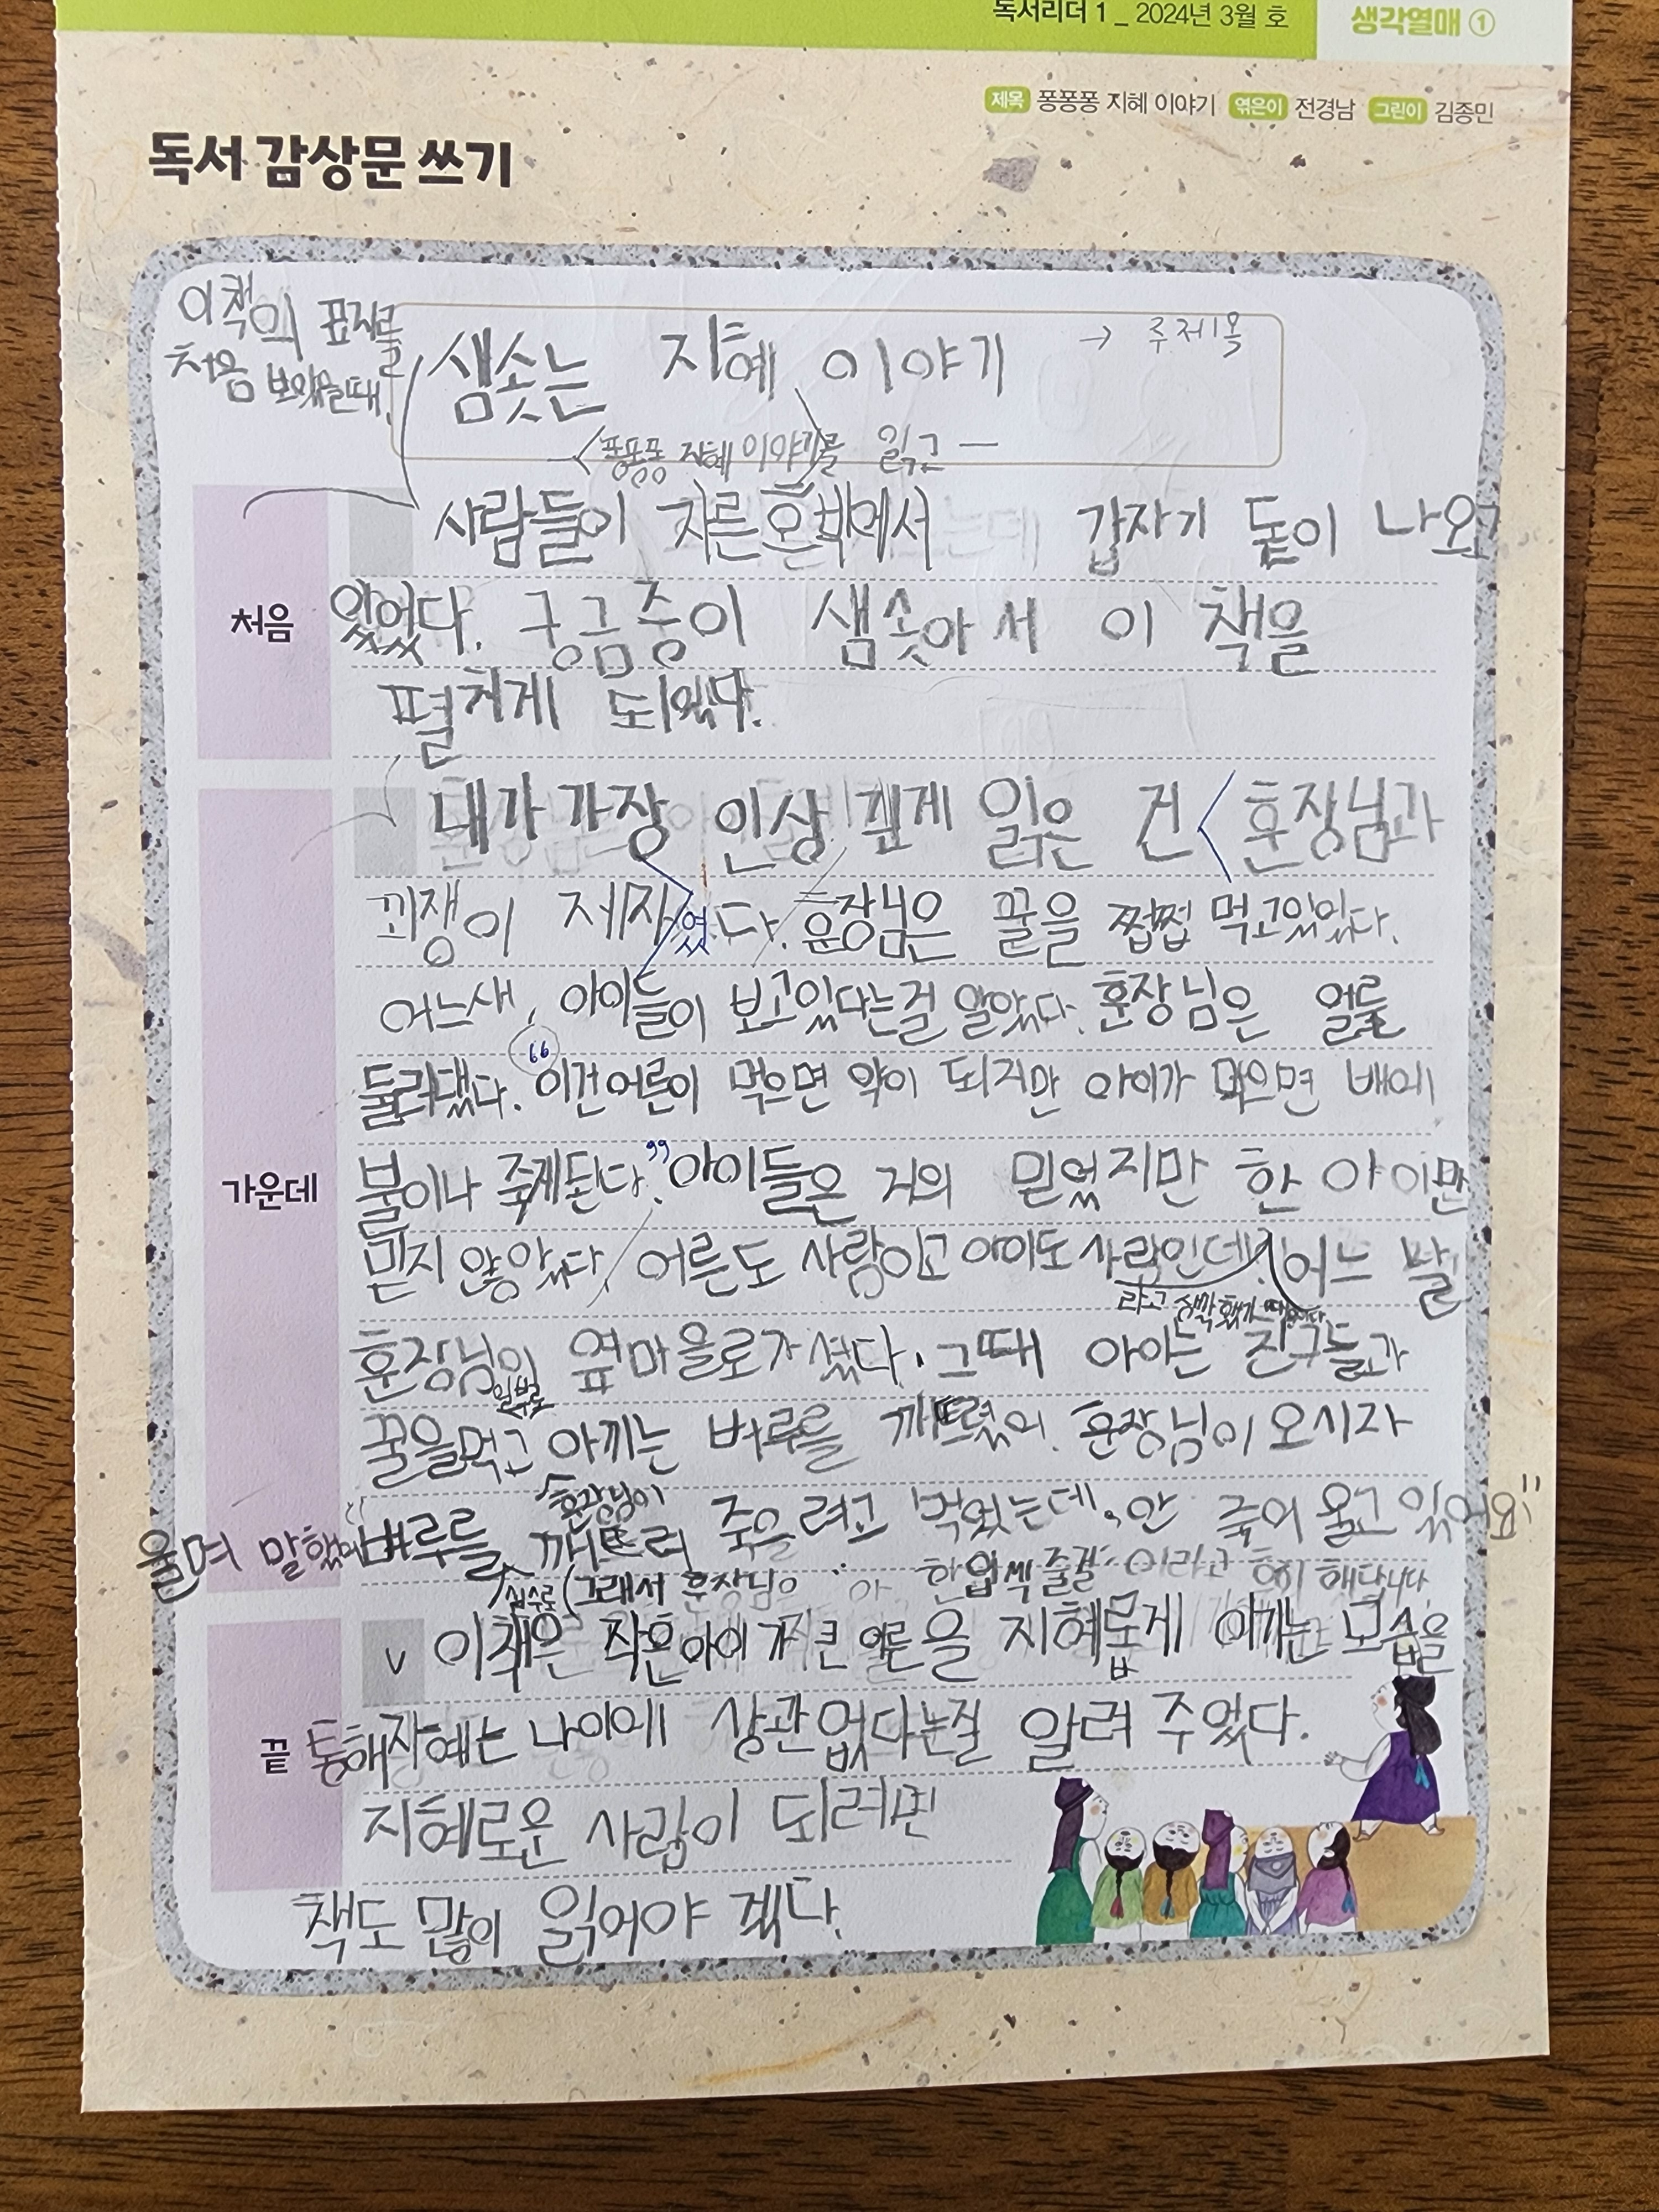 독서리더 1 _ 2024년 3월 호
생각열매 ①
제목 퐁퐁퐁 지혜 이야기 엮은이 전경남 그린이 김종민
독서 감상문 쓰기
이책의 표지를
처음 보았을때,
샘솟는 지혜 이야기 → 주제목
퐁퐁퐁 지혜 이야기를 읽고 —
사람들이 자른 호박에서 갑자기 돛이 나오
처음
있었다. 궁금중이 샘솟아서 이 책을
펼치게 되었다.
내가 가장 인상 깊게 읽은 건 < 훈장님과
꾀쟁이 제자였다. 훈장님은 꿀을 쩝쩝 먹고있었다.
어느새, 아이들이 보고있다는걸 알았다. 훈장님은 얼른
둘러댔다. "이건어른이 먹으면 약이 되지만 아이가 먹으면 배에
가운데
불이나 죽게된다." 아이들은 거의 믿었지만 한 아이만
믿지 않았다. 어른도 사람이고 아이도 사람인데. 어느 날
라고 생각했기 때문이다
훈장님이 옆마을로가셨다. 그때 아이는 친구들과
일부로
꿀을먹고 아끼는 벼루를 깨뜨렸어. 훈장님이 오시자
훈장님이
울며 말했어 "벼루를 깨뜨려 죽을려고 먹었는데, 안 죽어 울고 있어요"
실수로 (그래서 훈장님은 아, 한입씩 줄걸 이라고 후회 해다니다.
∨ 이책은 작은아이가 큰 어른을 지혜롭게 이기는 모습을
끝
통해지혜는 나이에 상관없다는걸 알려 주었다.
지혜로운 사람이 되려면
책도 많이 읽어야 겠다.